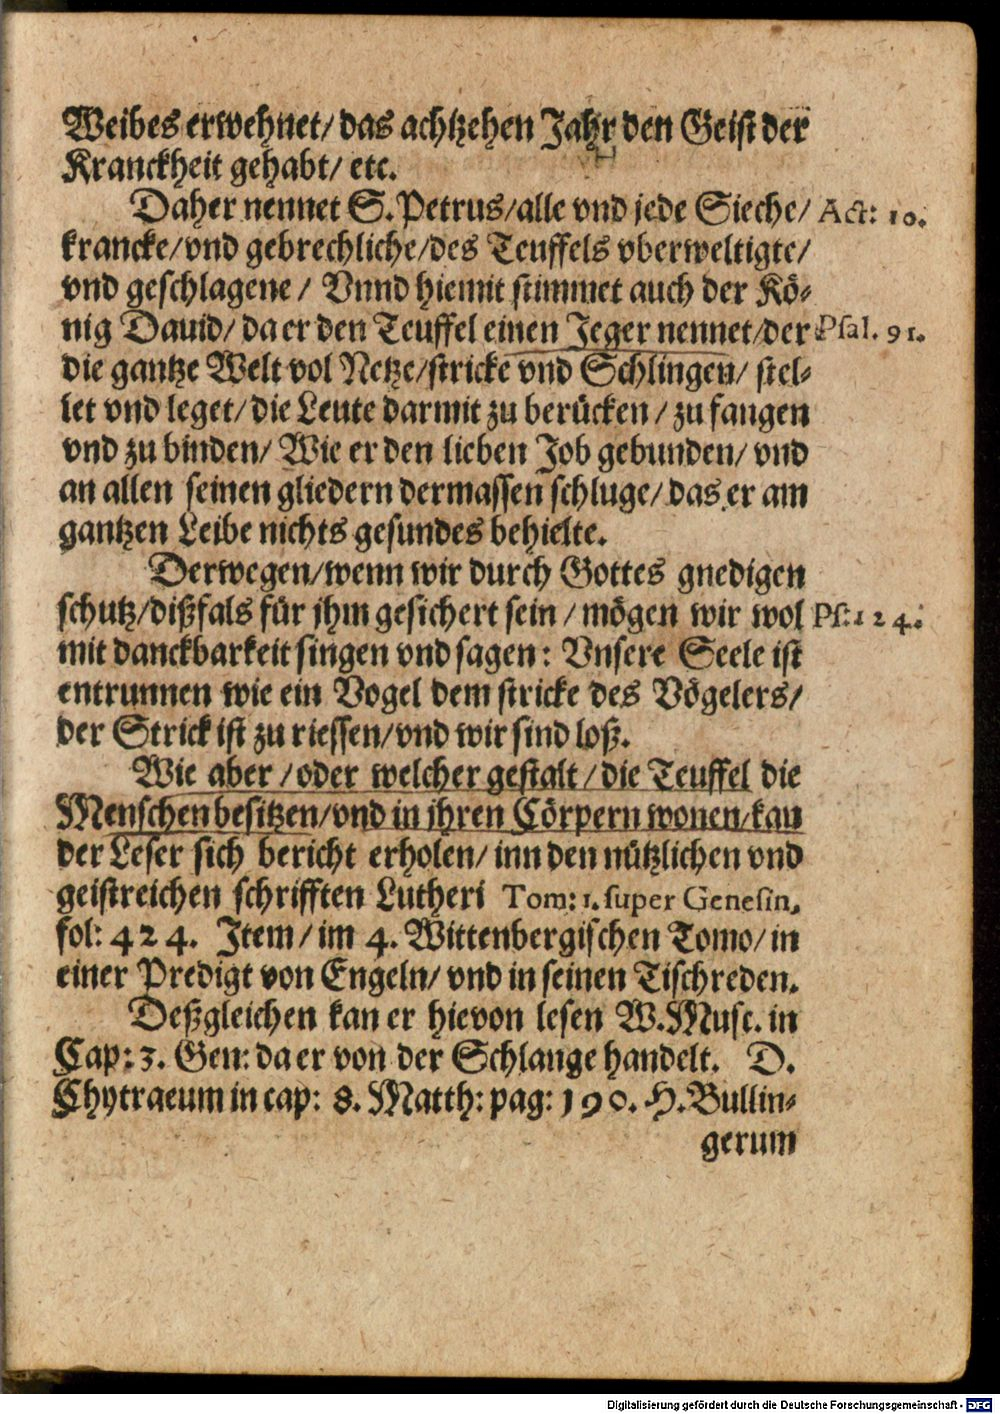 Weibes erwehnet/ das achtzehen Jahr den Geist der
Kranckheit gehabt/ etc.
Daher nennet S. Petrus/alle vnd jede Sieche/ Act: 10.
krancke/vnd gebrechliche/des Teuffels vberweltigte/
vnd geschlagene / Vnnd hiemit stimmet auch der Kö-
nig Dauid/ da er den Teuffel einen Jeger nennet/der Psal. 91.
die gantze Welt vol Netze/stricke vnd Schlingen/ stel-
let vnd leget/ die Leute darmit zu berücken / zu fangen
vnd zu binden/ Wie er den lieben Job gebunden/ vnd
an allen seinen gliedern dermassen schluge/ das er am
gantzen Leibe nichts gesundes behielte.
Derwegen/wenn wir durch Gottes gnedigen
schutz/dißfals für jhm gesichert sein / mögen wir wol Ps:124.
mit danckbarkeit singen vnd sagen: Vnsere Seele ist
entrunnen wie ein Vogel dem stricke des Vögelers/
der Strick ist zu riessen/vnd wir sind loß.
Wie aber /oder welcher gestalt / die Teuffel die
Menschen besitzen/vnd in jhren Cörpern wonen/kan
der Leser sich bericht erholen/ inn den nützlichen vnd
geistreichen schrifften Lutheri Tom: 1. super Genesin,
fol: 424. Item/ im 4. Wittenbergischen Tomo/ in
einer Predigt von Engeln/ vnd in seinen Tischreden.
Deßgleichen kan er hievon lesen W. Musc. in
Cap: 3. Gen: da er von der Schlange handelt. D.
Chytraeum in cap: 8. Matth: pag: 190. H. Bullin-
gerum
Digitalisierung gefördert durch die Deutsche Forschungsgemeinschaft - DFG